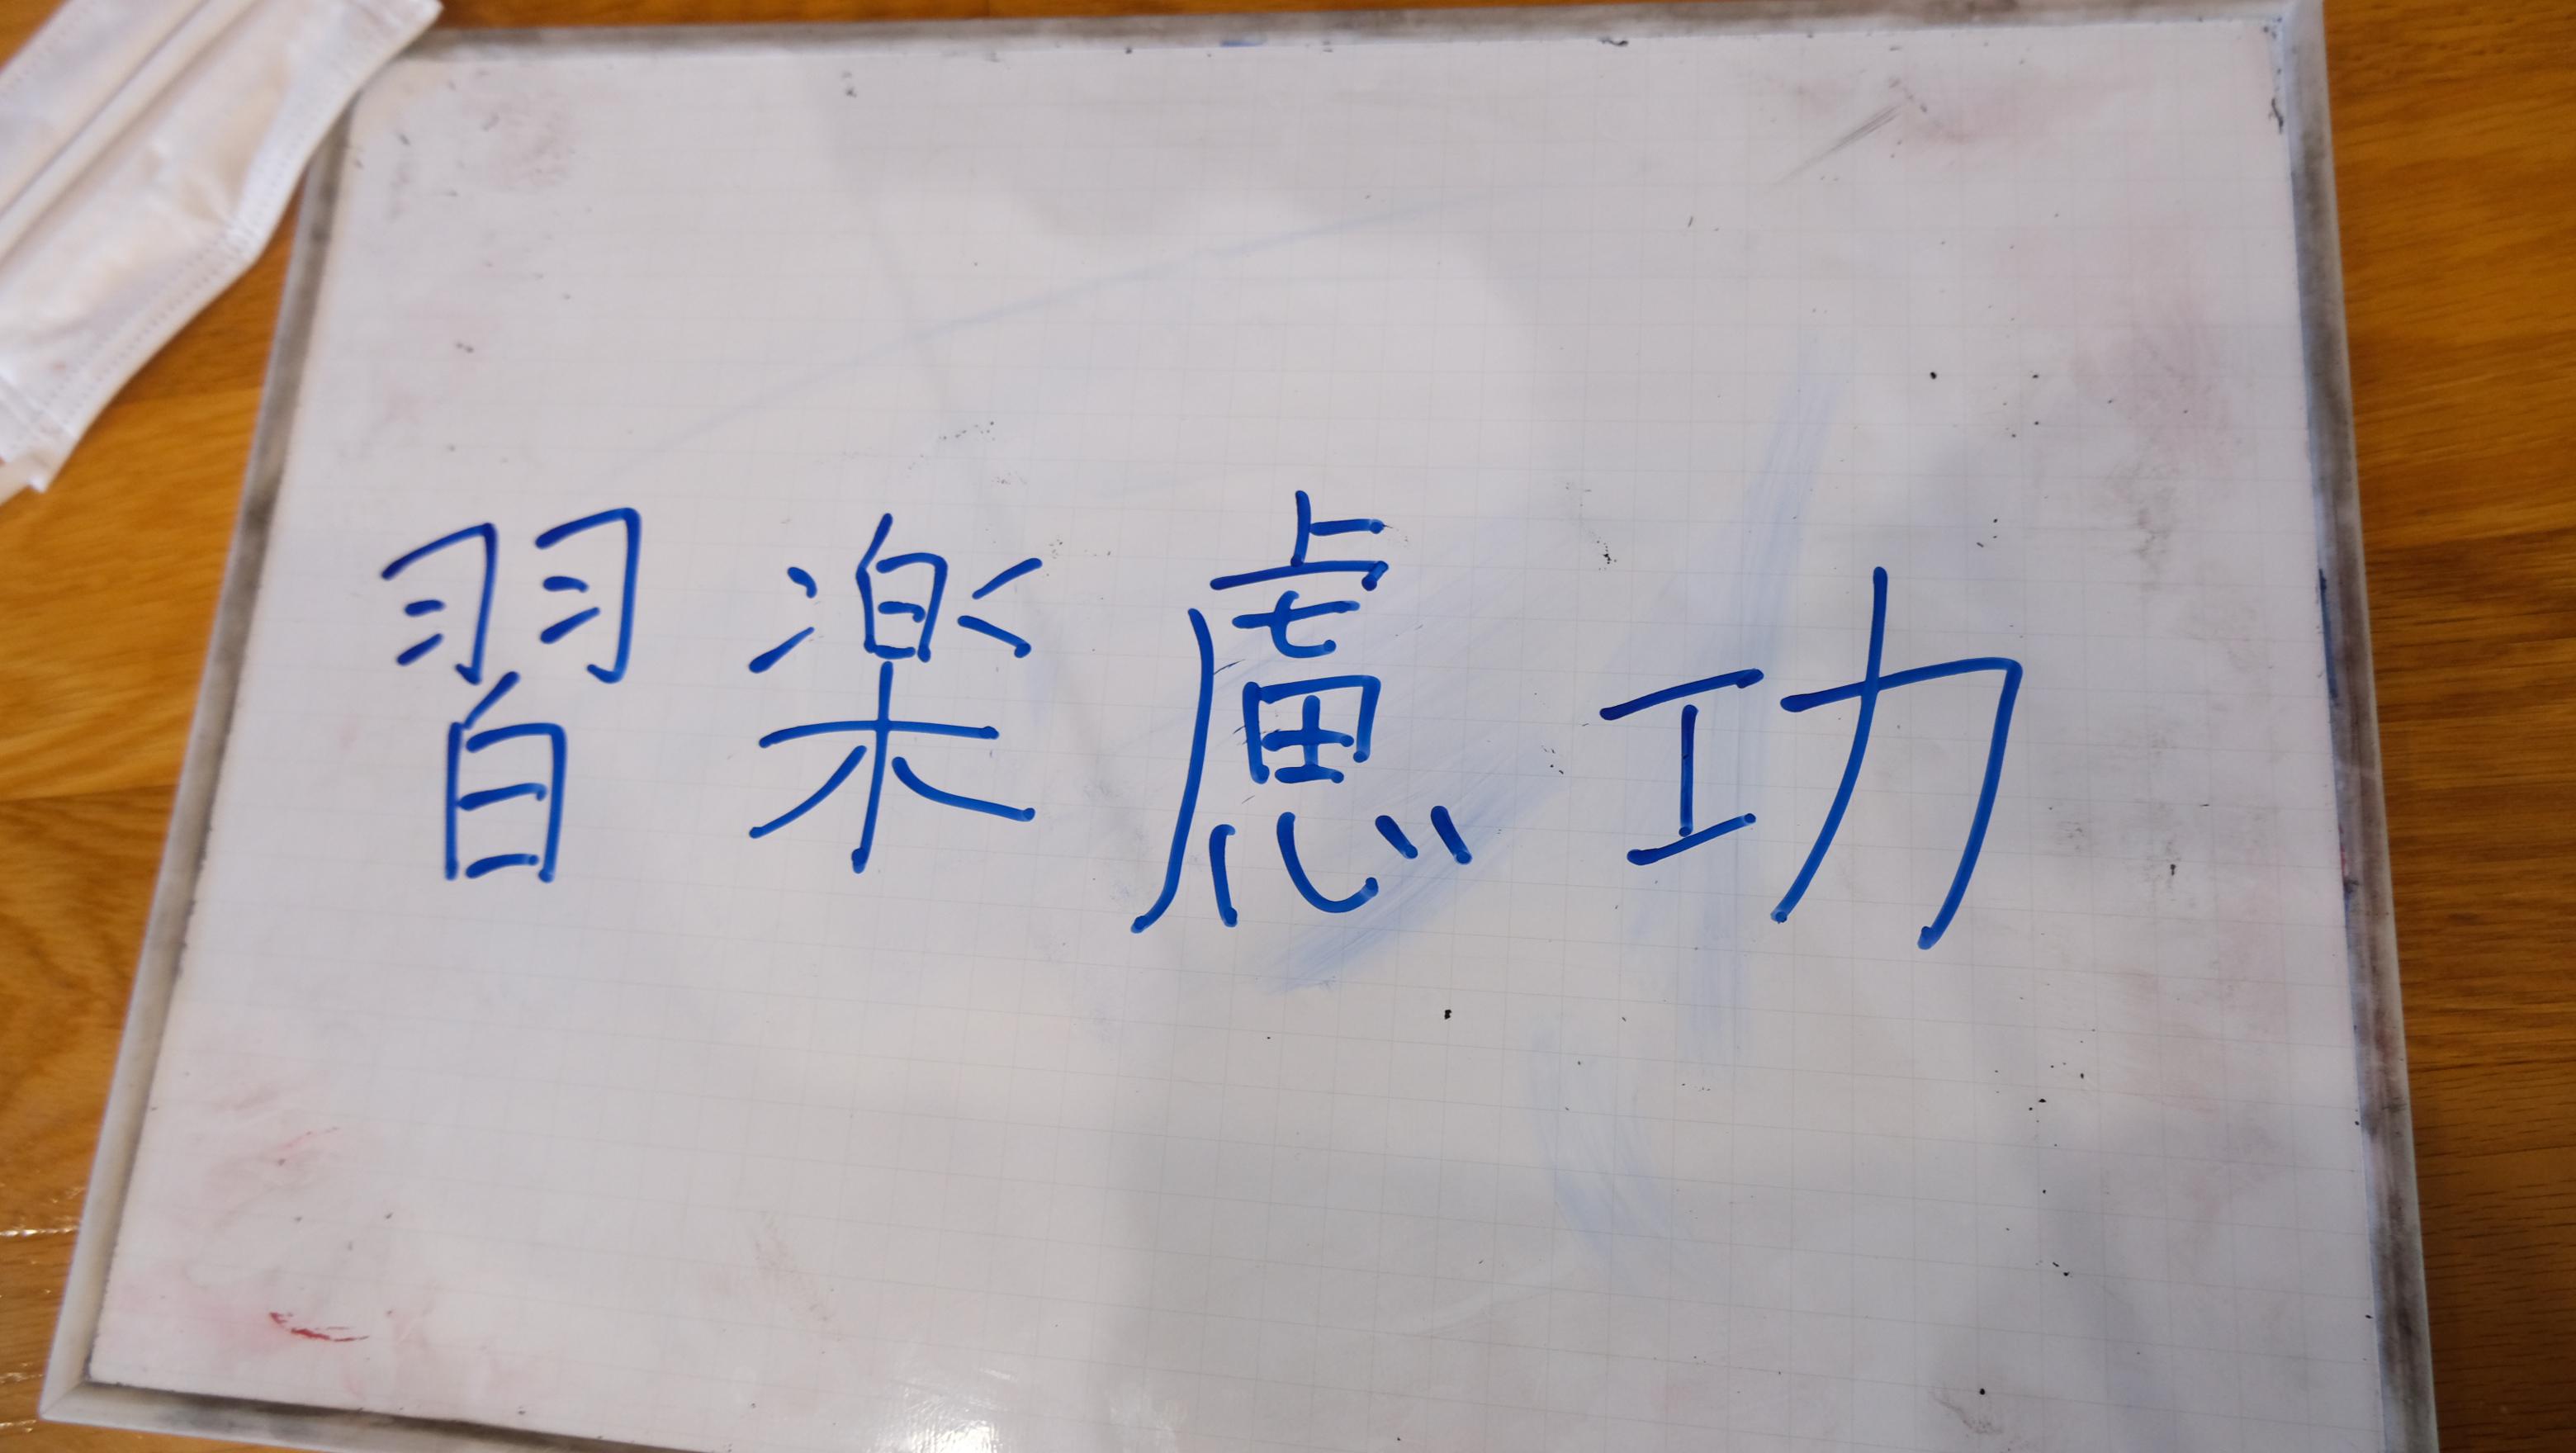 習楽慮功